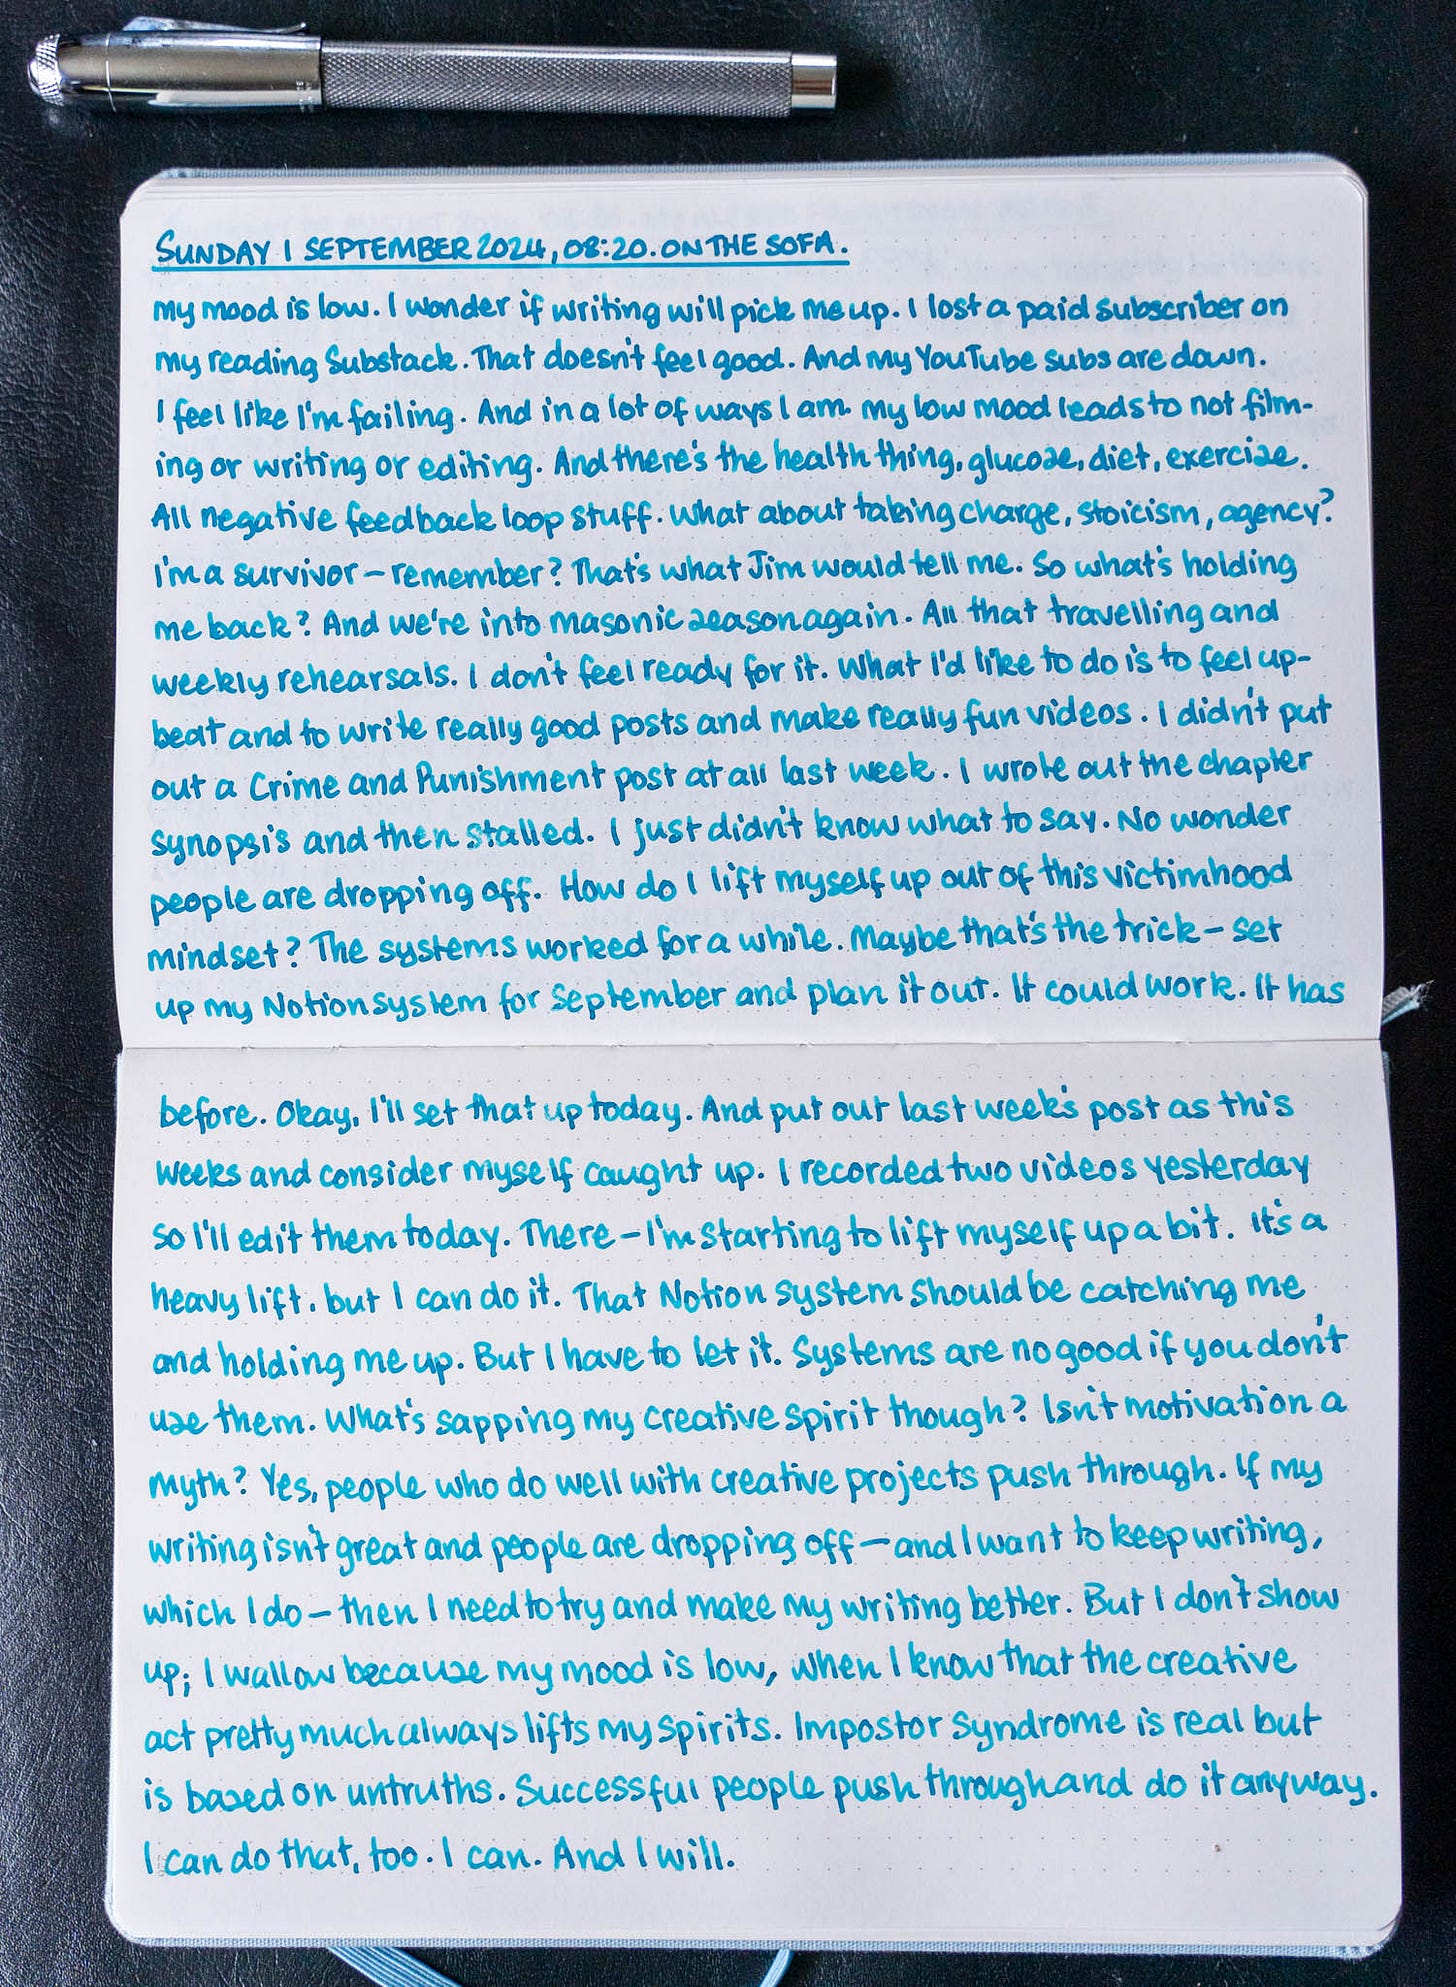 SUNDAY 1 SEPTEMBER 2024, 08:20. ON THE SOFA.
my mood is low. I wonder if writing will pick me up. I lost a paid subscriber on
my reading Substack. That doesn't feel good. And my YouTube subs are down.
I feel like I'm failing. And in a lot of ways I am. my low mood leads to not film-
ing or writing or editing. And there's the health thing, glucose, diet, exercise.
All negative feedback loop stuff. What about taking charge, stoicism, agency?
I'm a survivor – remember? That's what Jim would tell me. So what's holding
me back? And we're into masonic season again. All that travelling and
weekly rehearsals. I don't feel ready for it. What I'd like to do is to feel up-
beat and to write really good posts and make really fun videos. I didn't put
out a Crime and Punishment post at all last week. I wrote out the chapter
synopsis and then stalled. I just didn't know what to say. No wonder
people are dropping off. How do I lift myself up out of this victimhood
mindset? The systems worked for a while. Maybe that's the trick – set
up my Notion system for September and plan it out. It could work. It has
before. Okay, I'll set that up today. And put out last week's post as this
weeks and consider myself caught up. I recorded two videos yesterday
so I'll edit them today. There – I'm starting to lift myself up a bit. It's a
heavy lift. but I can do it. That Notion system should be catching me
and holding me up. But I have to let it. Systems are no good if you don't
use them. What's sapping my creative spirit though? Isn't motivation a
myth? Yes, people who do well with creative projects push through. If my
writing isn't great and people are dropping off – and I want to keep writing,
which I do – then I need to try and make my writing better. But I don't show
up; I wallow because my mood is low, when I know that the creative
act pretty much always lifts my spirits. Impostor syndrome is real but
is based on untruths. Successful people push through and do it anyway.
I can do that, too. I can. And I will.